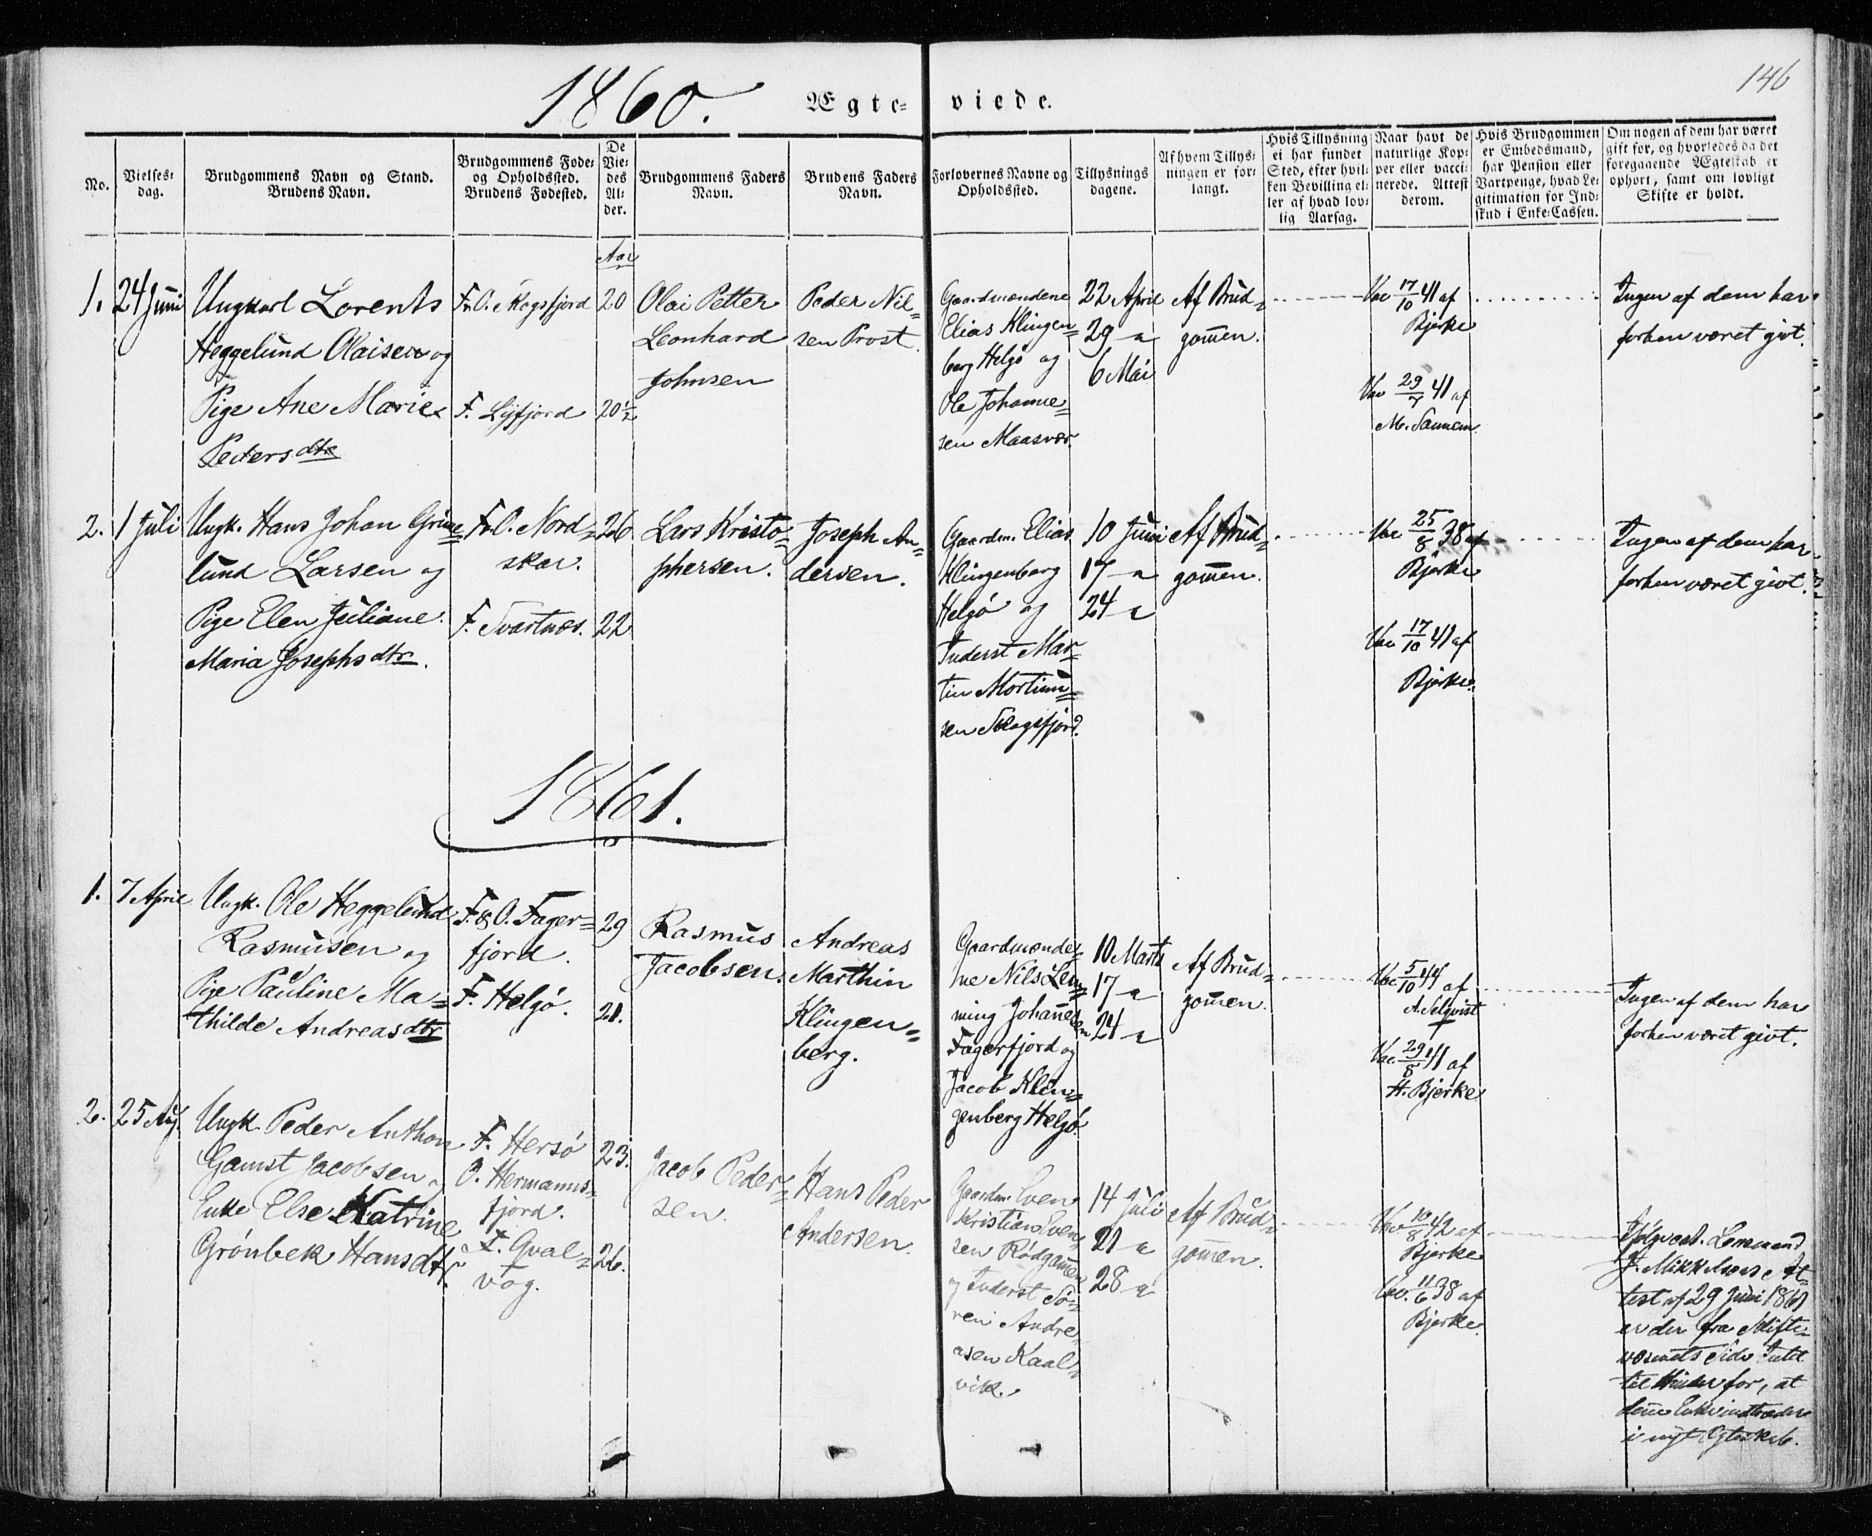 146
1860.
Ægte- viede.
No.
Vielses-
dag.
Brudgommens Navn og Stand.
Brudens Navn.
Brudgommens Føde-
og Opholdsted.
Brudens Fødested.
De
Vie-
des
Al-
der.
Brudgommens Faders
Navn.
Brudens Faders
Navn.
Forlovernes Navne og
Opholdssted.
Tillysnings
dagene.
Af hvem Tillys-
ningen er for-
langt.
Hvis Tillysning
ei har fundet
Sted, efter hvil-
ken Bevilling el-
ler af hvad lov-
lig Aarsag.
Naar havt de
naturlige Kop-
per eller vacci-
nerede. Attest
derom.
Hvis Brudgommen
er Embedsmand,
har Pension eller
Vartpenge, hvad Le-
gitimation for Ind-
skud i Enke-Cassen.
Om nogen af dem har været
gift for, og hvorledes da det
foregaaende Ægteskab er
ophørt, samt om lovligt
Skifte er holdt.
Aar
1. 24 Juni
Ungkarl Lorents
Heggelund Olaisen og
Pige Ane Marie
Pedersdtr
F. O. Skogsfjord
F. Lyfjord
20
20½
Olai Petter
Leonhard
Johnsen
Peder Nil-
sen Prost.
Gaardmændene
Elias Klingen-
berg Helgø og
Ole Johanne-
sen Maasvær.
22 April
29 -
6 Mai
Af Brud-
gommen.
Vac 17/10 41 af
Bjerke
Vac 29/7 41 af
Ingen af dem har
forhen været givt.
2. 1 Juli
Ungk. Hans Johan Grøne-
lund Larsen og
Pige Elen Juliane
Maria Josephsdtr.
F. O. Nord-
skar.
F. Svartnæs.
26
22
Lars Kristo-
phersen.
Joseph An-
dersen.
Gaardm. Elias
Klingenberg
Helgø og
Inderst Mar-
tin Mortin-
sen Skogsfjord.
10 Juni
17 -
24 -
Af Brud-
gommen.
Vac 25/8 38 af
Bjerke
Vac 17/10 41 af
Bjerke.
Ingen af dem har
forhen været givt.
1861.
1. 7 April
Ungk. Ole Heggelund
Rasmusen og
Pige Pauline Ma-
thilde Andreasdtr
F. & O. Fager-
fjord.
F. Helgø.
29
21.
Rasmus
Jacobsen.
Andreas
Marthin
Klingen-
berg.
Gaardmænde-
ne Nils Lem-
ming Johannesen
Fagerfjord og
Jacob Klin-
genberg Helgø.
10 Marts
17 -
24 -
Af Brud-
gommen.
Vac 5/10 44 af
A. Selqvist
Vac 29/8 41 af
H. Bjerke
Ingen af dem har
forhen været givt.
2. 25 Aug.
Ungk. Peder Anthon
Gamst Jacobsen og
Enke Else Katrine
Grønbek Hansdtr.
F. Hersø
O. Hermans-
fjord.
F. Qval-
vog.
23.
26.
Jacob Peder-
sen.
Hans Peder
Andersen.
Gaardm. Even
Kristian Even-
sen Rødgammen
og Inderst Sø-
ren Andre-
asen Kaal-
vik.
14 Juli
21 -
28 -
Af Brud-
gommen.
Vac 10/8 42 af
Bjerke
Vac. 11/6 38 af
Bjerke.
Ifølge Lensmand
J. Mikkelsens At-
test af 29 Juni 1861
er der fra Skifte-
væsenets Side Intet
til Hinder for, at
denne Enke indtræder
i nyt Egteskab.